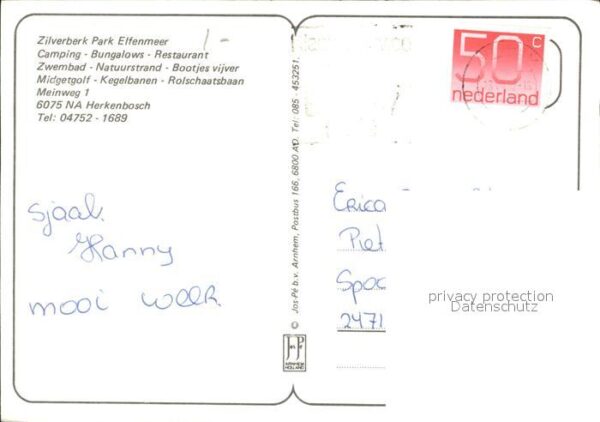 Zilverberk Park Elfenmeer
Camping - Bungalows - Restaurant
Zwembad - Natuurstrand - Bootjes vijver
Midgetgolf - Kegelbanen - Rolschaatsbaan
Meinweg 1
6075 NA Herkenbosch
Tel: 04752 - 1689
1-
sjaal
Hanny
mooi week
© Jos-Pé b.v. Arnhem, Postbus 166, 6800 AD. Tel. 085 - 453251.
JosPé
ARNHEM
HOLLAND
50c
nederland
Erica
Piet
Spoo
2471
privacy protection
Datenschutz